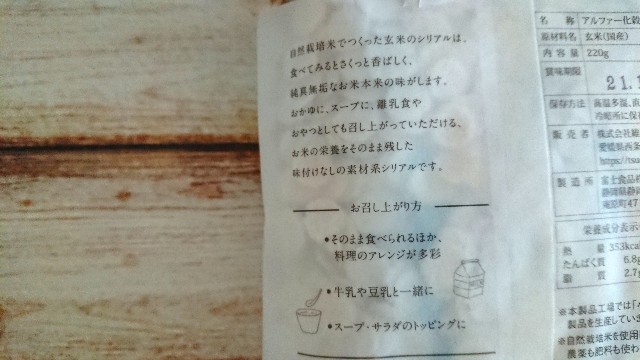 自然栽培米でつくった玄米のシリアルは、
食べてみるとさくっと香ばしく、
純真無垢なお米本来の味がします。
おかゆに、スープに、離乳食や
おやつとしても召し上がっていただける、
お米の栄養をそのまま残した
味付けなしの素材系シリアルです。
お召し上がり方
•そのまま食べられるほか、
料理のアレンジが多彩
•牛乳や豆乳と一緒に
•スープ・サラダのトッピングに
名 称 アルファー化穀
原材料名 玄米(国産)
内容量 220g
賞味期限 21.1
保存方法 高温多湿、直
冷暗所に保
販売者 株式会社
愛媛県西条
https://tsu
製造所 富士食品
静岡県
庵原町47
栄養成分表示
熱量 353kcal
たんぱく質 6.8g
脂質 2.7g
※本製品工場では「
製品を生産してい
※自然栽培米を使用
農薬も肥料も使わ